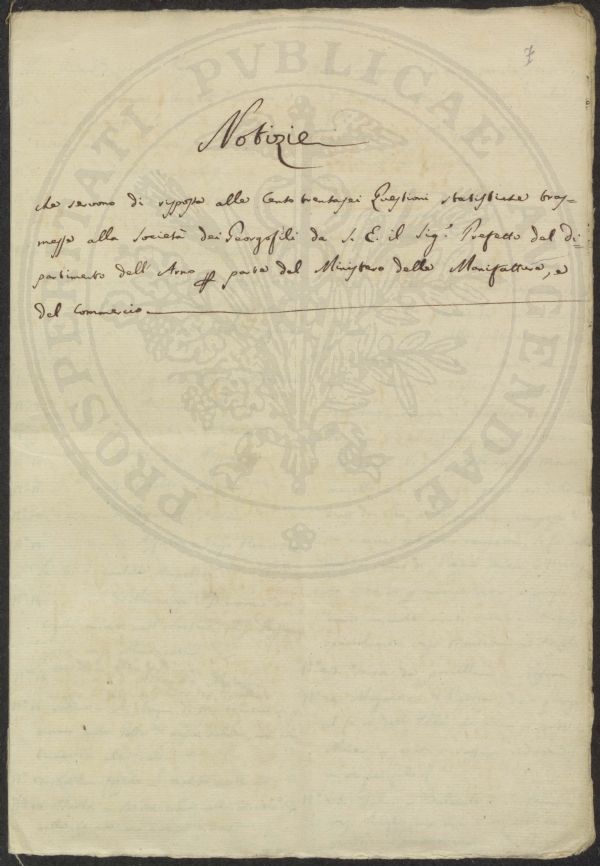 7
Notizie
che servono di risposta alle Cento trentasei Questioni statistiche tras=
messe alla Società dei Georgofili da S. E. il Sig.r Prefetto del di=
partimento dell'Arno per parte del Ministero delle Manifatture, e
del Commercio
PROSPERITATI PVBLICAE AVGENDAE